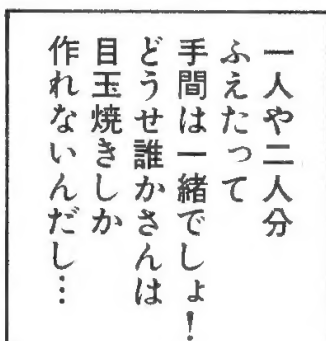 一人や二人分
ふえたって
手間は一緒でしょ！
どうせ誰かさんは
目玉焼きしか
作れないんだし…